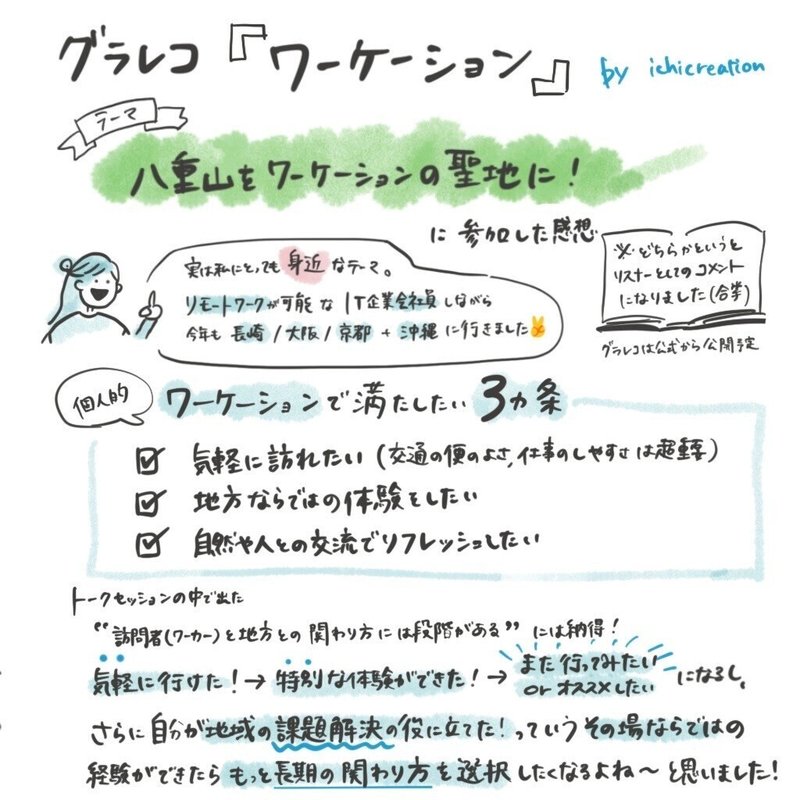 グラレコ『ワーケーション』 by ichicreation
テーマ
八重山をワーケーションの聖地に!
に参加した感想
実は私にとっても身近なテーマ。
リモートワークが可能なIT企業会社員しながら
今年も長崎/大阪/京都+沖縄に行きました✌
※どちらかというと
リスナーとしてのコメント
になりました(合掌)
グラレコは公式から公開予定
個人的
ワーケーションで満たしたい3カ条
☑ 気軽に訪れたい(交通の便のよさ,仕事のしやすさは超重要)
☑ 地方ならではの体験をしたい
☑ 自然や人との交流でリフレッシュしたい
トークセッションの中で出た
“訪問者(ワーカー)と地方との関わり方には段階がある”には納得!
気軽に行けた!→特別な体験ができた!→また行ってみたい
or オススメしたい になるし、
さらに自分が地域の課題解決の役に立てた!っていうその場ならではの
経験ができたらもっと長期の関わり方を選択したくなるよね〜と思いました!